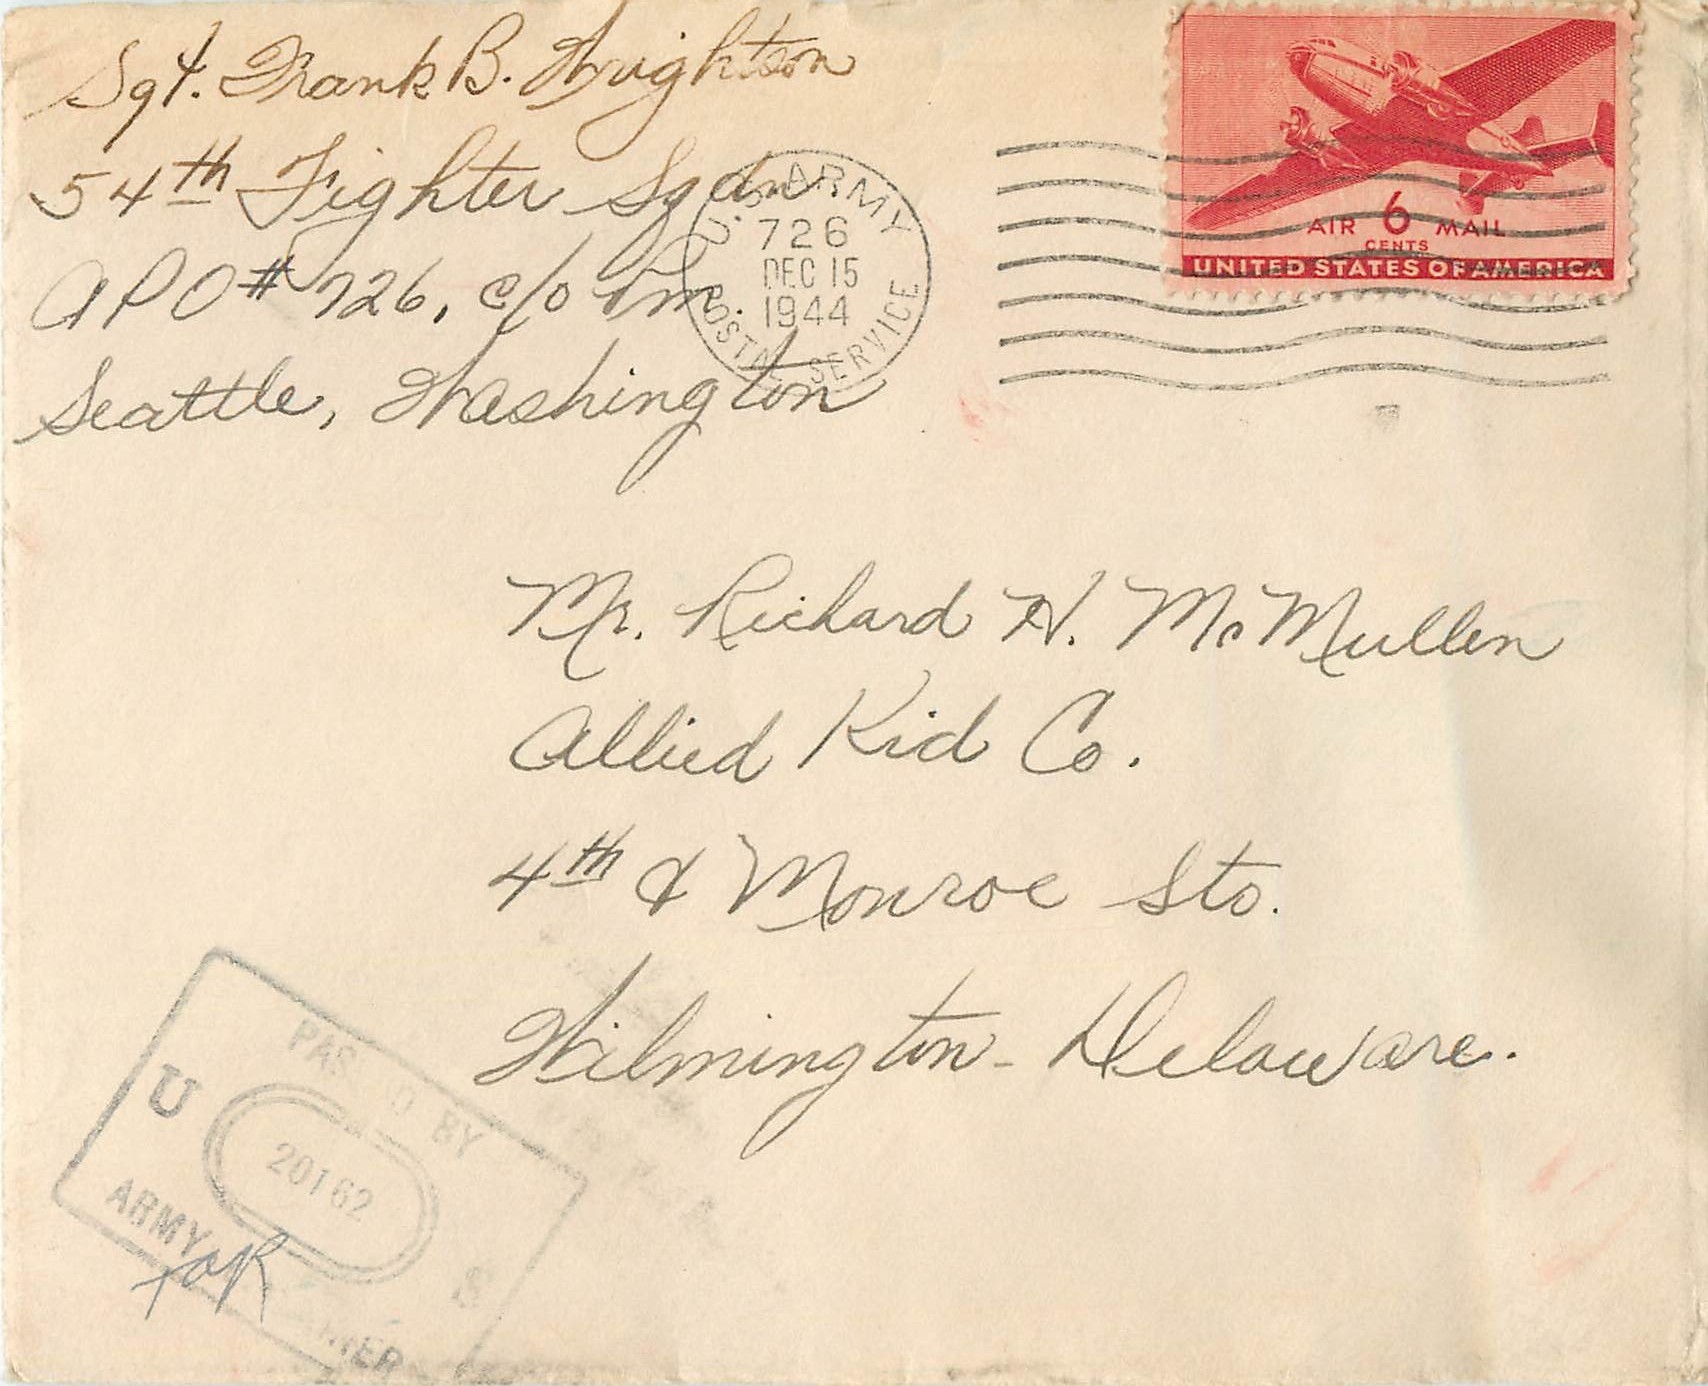 Sgt. Frank B. Wrighton
54th Fighter Sqdn
APO # 726, c/o Pm.
Seattle, Washington
U.S. ARMY
726
DEC 15
1944
POSTAL SERVICE
AIR 6 MAIL
CENTS
UNITED STATES OF AMERICA
Mr. Richard H. McMullen
Allied Kid Co.
4th & Monroe Sts.
Wilmington - Delaware.
PAS D BY
U S
20162
ARMY